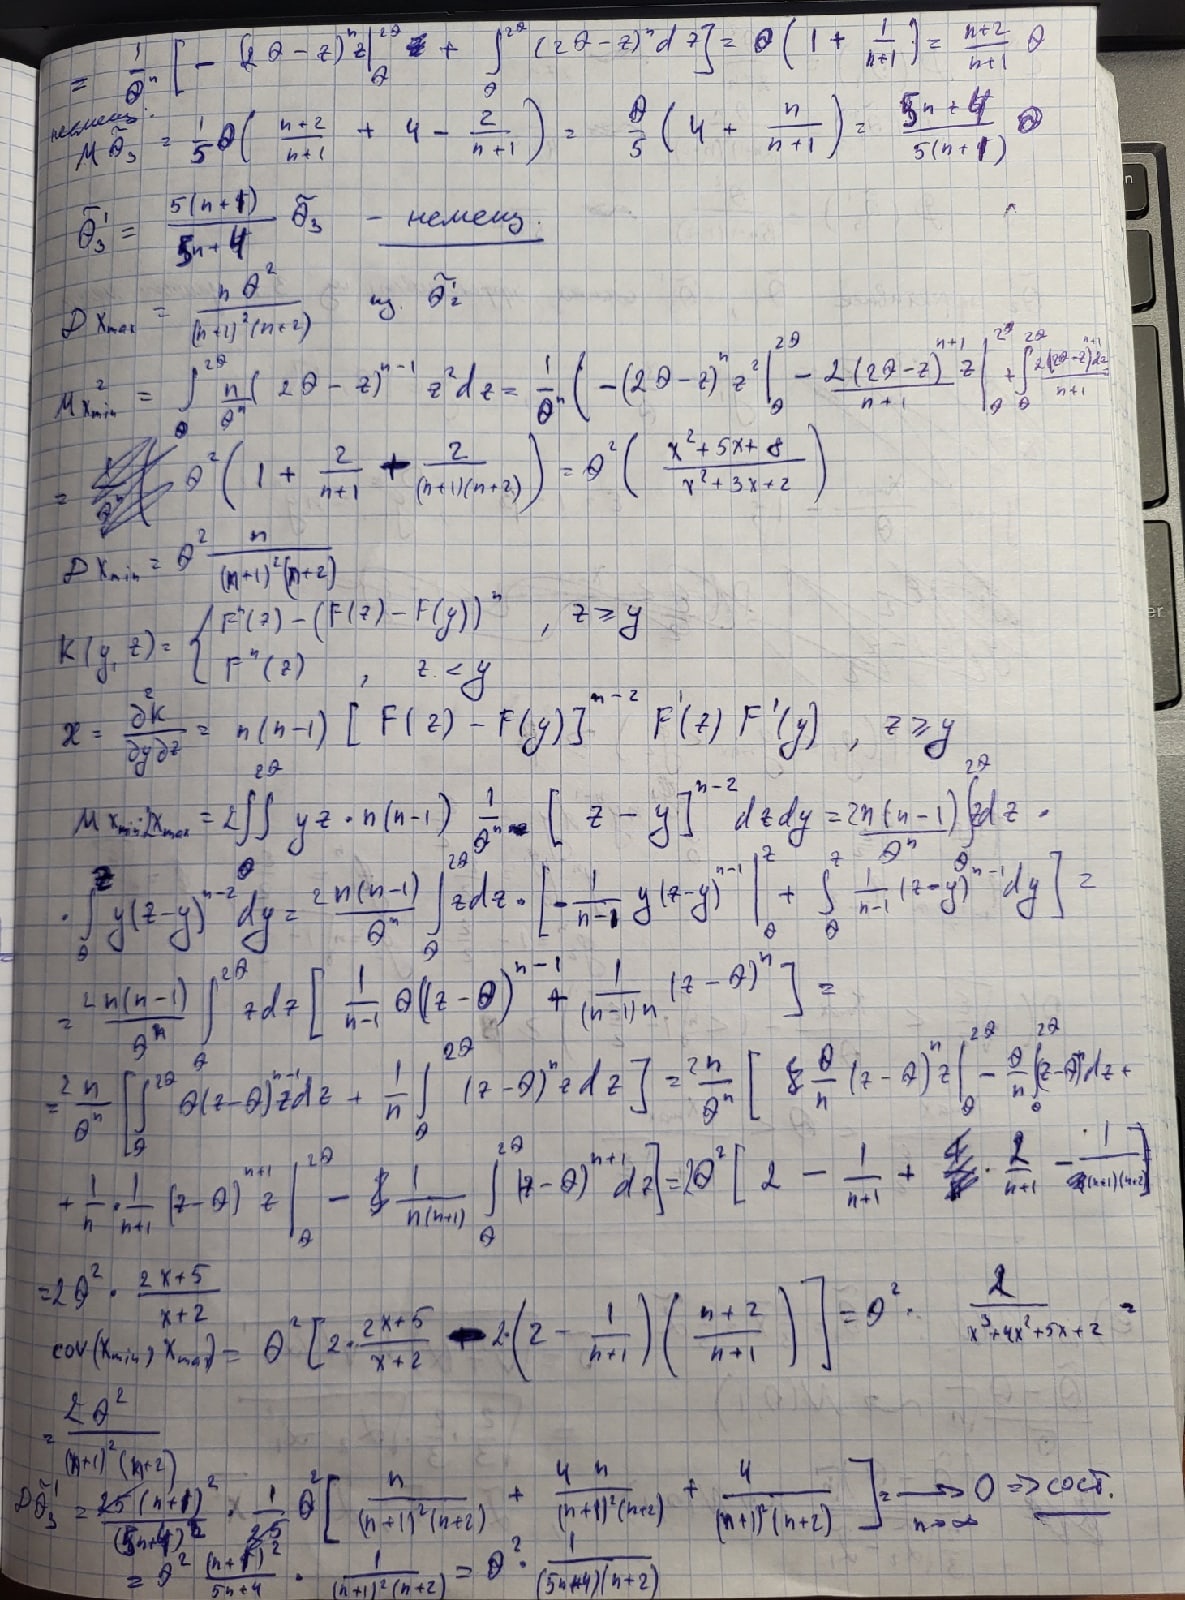 = 1/θⁿ [ - (2θ-z)ⁿ z |_θ^{2θ} + ∫_θ^{2θ} (2θ-z)ⁿ dz ] = θ ( 1 + 1/(n+1) ) = (n+2)/(n+1) θ
несмещ:
M θ̃₃ = 1/5 θ ( (n+2)/(n+1) + 4 - 2/(n+1) ) = θ/5 ( 4 + n/(n+1) ) = (5n+4)/(5(n+1)) θ
θ̃₃' = 5(n+1)/(5n+4) θ̃₃ - несмещ.
D x_max = nθ²/((n+1)²(n+2)) из θ̃₂'
M x²_min = ∫_θ^{2θ} n/θⁿ (2θ-z)^{n-1} z² dz = 1/θⁿ ( -(2θ-z)ⁿ z² |_θ^{2θ} - 2(2θ-z)^{n+1}/(n+1) z |_θ^{2θ} + ∫_θ^{2θ} 2(2θ-z)^{n+1} dz/(n+1)
= θ² ( 1 + 2/(n+1) + 2/((n+1)(n+2)) ) = θ² ( (x²+5x+8)/(x²+3x+2) )
D x_min = θ² n/((n+1)²(n+2))
K(y, z) = { Fⁿ(z) - (F(z) - F(y))ⁿ , z ≥ y
Fⁿ(z) , z < y
x = ∂²K/∂y∂z = n(n-1) [ F(z) - F(y) ]^{n-2} F'(z) F'(y) , z ≥ y
M x_min·2x_max = 2∫∫_θ^{2θ} yz · n(n-1) 1/θⁿ [ z - y ]^{n-2} dz dy = 2n(n-1)/θⁿ ∫_θ^{2θ} z dz ·
· ∫_θ^z y(z-y)^{n-2} dy = 2n(n-1)/θⁿ ∫_θ^{2θ} z dz · [ - 1/(n-1) y(z-y)^{n-1} |_θ^z + ∫_θ^z 1/(n-1) (z-y)^{n-1} dy ] =
= 2n(n-1)/θⁿ ∫_θ^{2θ} z dz [ 1/(n-1) θ(z-θ)^{n-1} + 1/((n-1)n) (z-θ)ⁿ ] =
= 2n/θⁿ [ ∫_θ^{2θ} θ(z-θ)^{n-1} z dz + 1/n ∫_θ^{2θ} (z-θ)ⁿ z dz ] = 2n/θⁿ [ θ/n (z-θ)ⁿ z |_θ^{2θ} - θ/n ∫_θ^{2θ} (z-θ)ⁿ dz +
+ 1/n · 1/(n+1) (z-θ)^{n+1} z |_θ^{2θ} - 1/(n(n+1)) ∫_θ^{2θ} (z-θ)^{n+1} dz ] = 2θ² [ 2 - 1/(n+1) + 2/(n+1) - 1/((n+1)(n+2)) ]
= 2θ² · (2x+5)/(x+2)
cov(x_min, x_max) = θ² [ 2· (2x+5)/(x+2) - 2·( 2 - 1/(n+1) ) ( (n+2)/(n+1) ) ] = θ² · 2/(x³+4x²+5x+2) =
= 2θ²/((n+1)²(n+2))
D θ̃₃' = 25(n+1)²/(5n+4)² · 1/25 θ² [ n/((n+1)²(n+2)) + 4n/((n+1)²(n+2)) + 4/((n+1)²(n+2)) ] = ⟶_{n→∞} 0 ⇒ сост.
= θ² (n+1)²/(5n+4) · 1/((n+1)²(n+2)) = θ² · 1/((5n+4)(n+2))